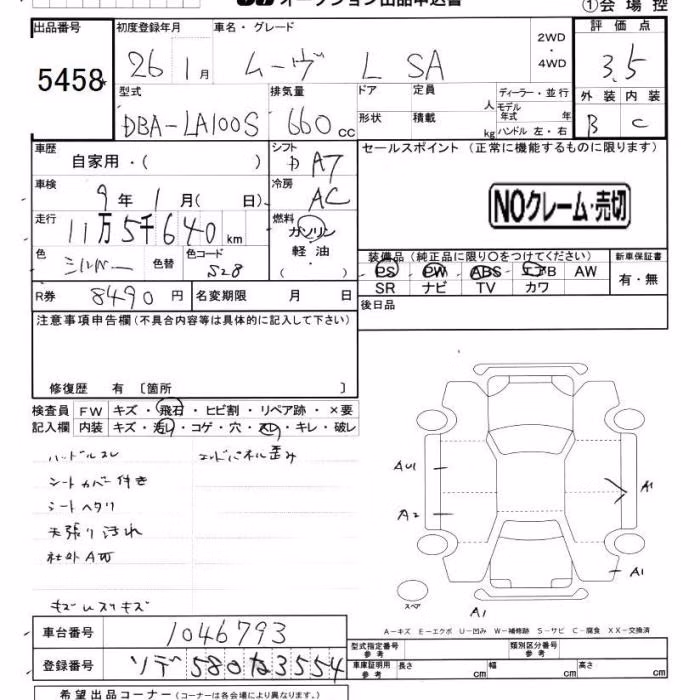 オークション出品申込書
①会場控
出品番号 初度登録年月 車名・グレード 2WD・4WD 評価点
5458 26 1月 ムーヴ L SA 3.5
型式 排気量 ドア 定員 人 ディーラー・並行 外装 内装
DBA-LA100S 660cc 形状 積載 kg モデル年式 年 B C
ハンドル 左・右
車歴 自家用・( ) シフト D AT セールスポイント (正常に機能するものに限ります)
車検 9年1月( 日) 冷房 AC
NOクレーム・売切
走行 11万5千640km 燃料 ガソリン 軽油 ・( )
色 シルバー 色替 色コード S28
装備品 (純正品に限り○をつけてください) 新車保証書
PS PW ABS エアB AW 有・無
SR ナビ TV カワ
R券 8490円 名変期限 月 日 後日品
注意事項申告欄 (不具合内容等は具体的に記入して下さい)
修復歴 有 〔箇所 〕
検査員 FW キズ・飛石・ヒビ割・リペア跡・×要
記入欄 内装 キズ・汚レ・コゲ・穴・スレ・キレ・破レ
ハンドルスレ エンドパネル歪み
シートカバー付き
シートヘタリ
天張り汚れ
社外AW
キズUスリキズ
AU1 A1
A2
A1
スペア A1
A-キズ E-エクボ U-凹み W-補修跡 S-サビ C-腐食 XX-交換済
車台番号 1046793
型式指定番号 参考 類別区分番号 参考
登録番号 ソデ 580 な 3554
車庫証明用 参考 長さ cm 幅 cm 高さ cm
希望出品コーナー (コーナーは各会場により異なります。)